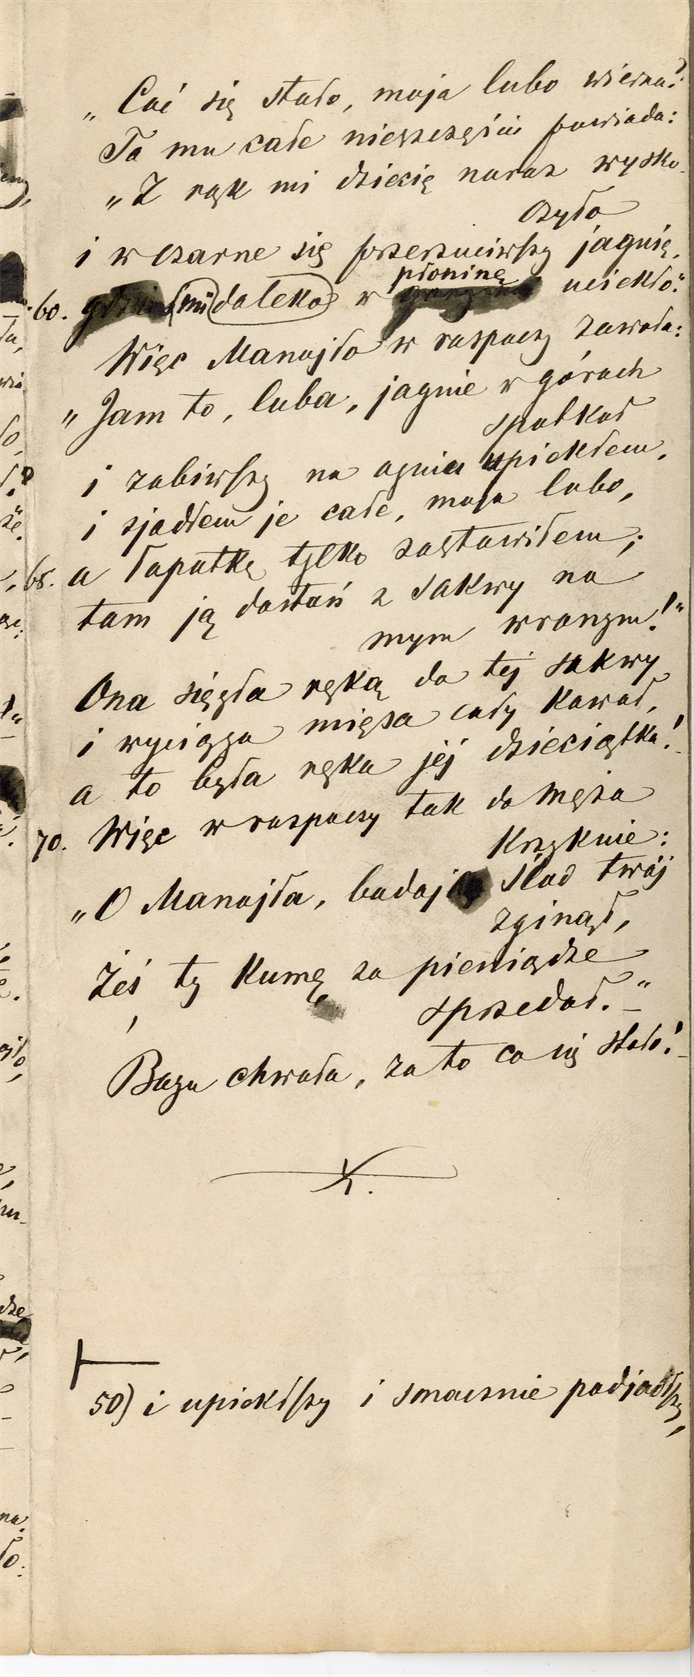 „Coć się stało, moja lubo wierna?
Ta mu całe nieszczęście powiada:
„Z rąk mi dziecię naraz wysko-
czyło
i w czarne się przerzuciwszy jagnię,
płoninę
60. (mi daleko) w uciekło."
Więc Manojło w rozpaczy zawoła:
„Jam to, luba, jagnie w górach
spotkał
i zabiwszy na ogniu upiekłem,
i zjadłem je całe, moja lubo,
65. a łopatkę tylko zostawiłem;
tam ją dostań z sakwy na
mym wronym!"
Ona sięgła ręką do tej sakwy
i wyciąga mięsa cały kawał,
a to była ręka jej dzieciątka!
70. Więc w rozpaczy tak do męża
krzyknie:
„O Manojła, bodaj ślad twój
zginął,
Żeś ty kumę za pieniądze
sprzedał."_
Bogu chwała, za to co się stało!_
50) i upiekłszy i smacznie podjadłszy,